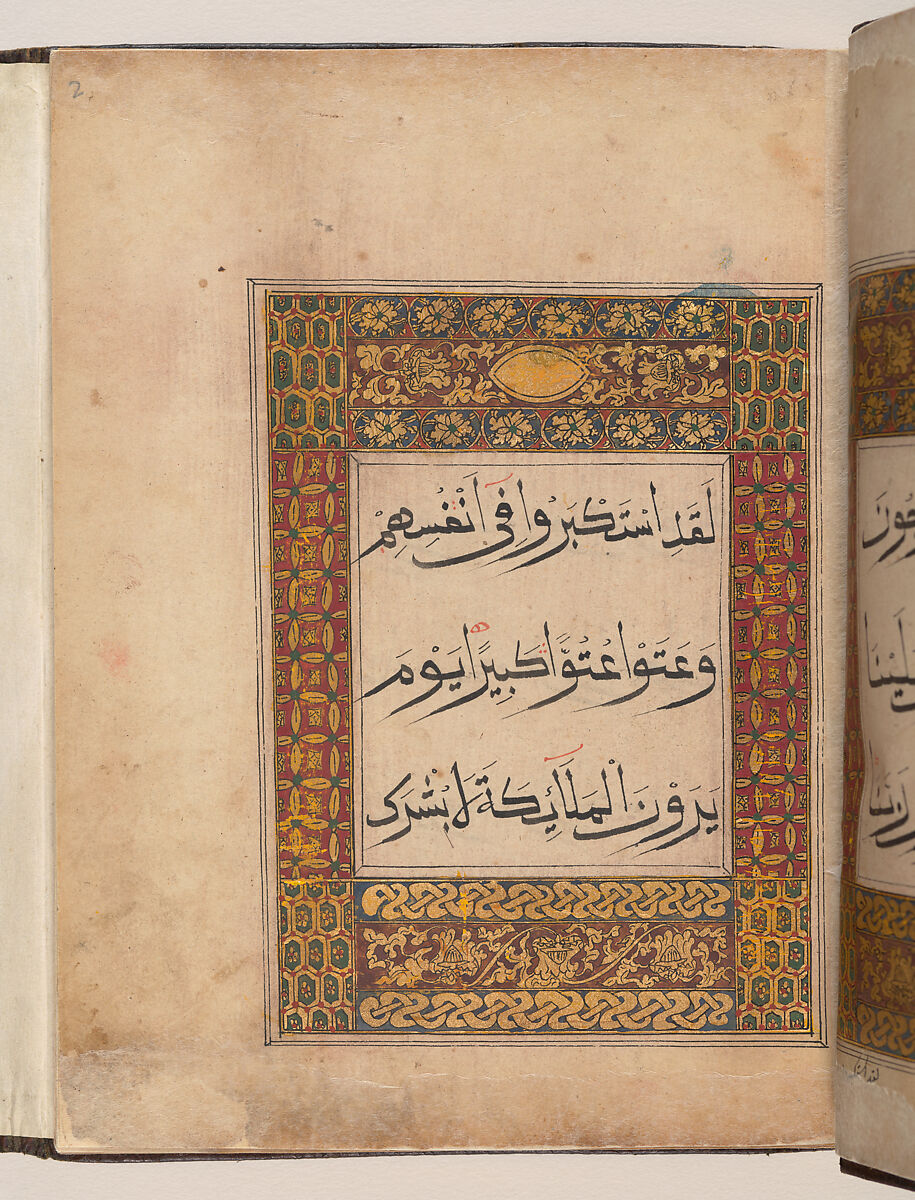 لَقَدِ اسْتَكْبَرُوا فِي أَنْفُسِهِمْ
وَعَتَوْا عُتُوًّا كَبِيرًا يَوْمَ
يَرَوْنَ الْمَلَائِكَةَ لَا بُشْرَى
2